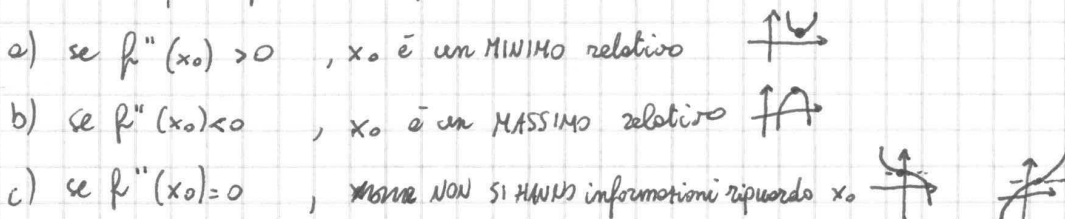 a) se f"(x₀) >0 , x₀ é un MINIMO relativo
b) se f"(x₀)<0 , x₀ é un MASSIMO relativo
c) se f"(x₀)=0 , NON SI HANNO informazioni riguardo x₀